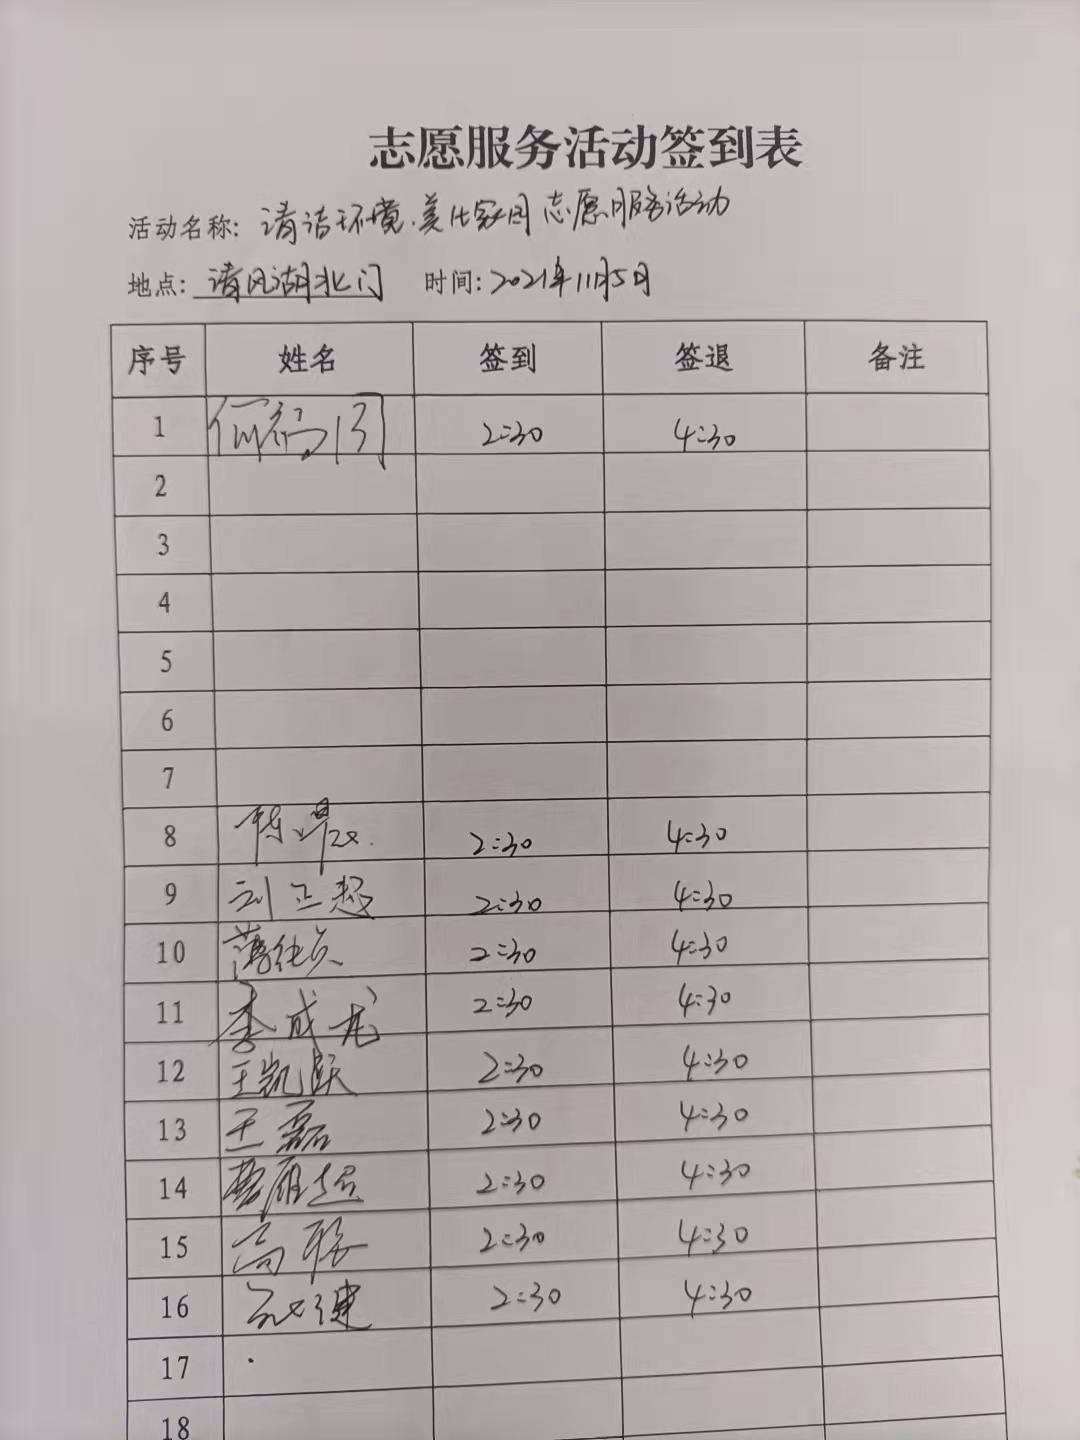 志愿服务活动签到表
活动名称: 清洁环境.美化家园志愿服务活动
地点: 清风湖北门 时间: 2021年11月5日
序号 姓名 签到 签退 备注
1 2:30 4:30
2
3
4
5
6
7
8 2:30 4:30
9 刘正超 2:30 4:30
10 2:30 4:30
11 李成龙 2:30 4:30
12 王凯跃 2:30 4:30
13 王磊 2:30 4:30
14 2:30 4:30
15 2:30 4:30
16 2:30 4:30
17
18